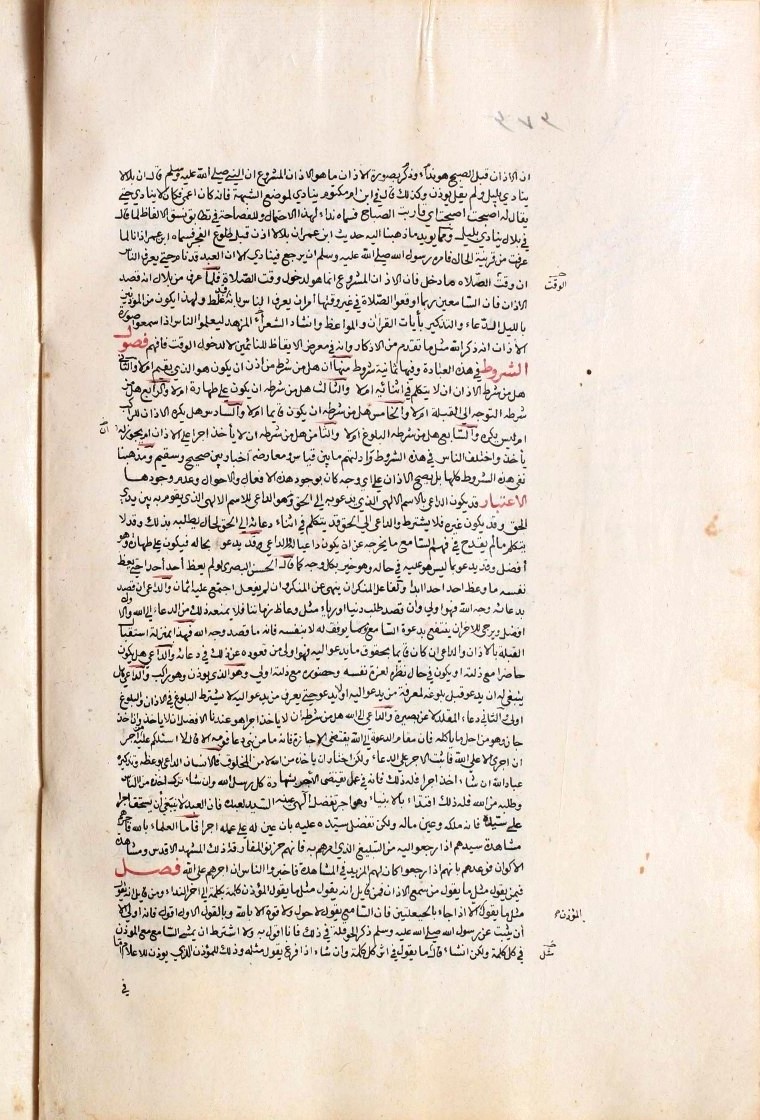 ان الاذان قبل الصبح هو نداء وذكر بصورة الاذان ما هو الاذان المشروع ان النبي صلى الله عليه وسلم قال ان بلالا
ينادي بليل ولم يقل يوذن وكذلك قال في ابن ام مكتوم ينادي لموضع الشبهة فانه كان اعمى فكان لا ينادي حتى
يقال له اصبحت اصبحت اي قاربت الصباح فسماه نداء لهذا الاحتمال وللفصاحة في تطابق نسق الالفاظ لما قال
في بلال ينادي بليل ومما يويد ما ذهبنا اليه حديث ابن عمر ان بلالا اذن قبل طلوع الفجر فسماه ابن عمر اذانا لما
عرف من قرينة الحال فامره رسول الله صلى الله عليه وسلم ان يرجع فينادي الا ان العبد قد نام حتى يعرف الناس
ان وقت الصلاه ما دخل فان الاذان المشروع انما هو لدخول وقت الصلاة فلما عرف من بلال انه قصد
الاذان فان السامعين ربما اوقعوا الصلاة في غير وقتها امر ان يعرف الناس بانه غلط ولهذا يكون من الموذنين
بالليل الدعاء والتذكير بآيات القران والمواعظ وانشاد الشعر المزهد ليعلموا الناس اذا سمعوا صورة
الاذان انه ذكر الله مثل ما تقدم من الاذكار وانه في معرض الايقاظ للنائمين لا لدخول الوقت فافهم فصول
الشروط في هذه العبادة وفيها ثمانية شروط منها ان هل من شرط من اذن ان يكون هو الذي يقيم ام لا والثاني
هل من شرط الاذان ان لا يتكلم في اثنائه ام لا والثالث هل من شرطه ان يكون على طهارة ام لا والرابع هل من
شرطه التوجه الى القبلة ام لا والخامس هل من شرطه ان يكون قائما ام لا والسادس هل يكره الاذان للراكب
ام ليس يكره والسابع هل من شرطه البلوغ ام لا والثامن هل من شرطه ان لا يأخذ اجرا على الاذان ام يجوز له
يأخذ واختلف الناس في هذه الشروط وادلتهم ما بين قياس ومعارضة اخبار بين صحيح وسقيم ومذهبنا
نفي هذه الشروط كلها بل يصح الاذان على اي وجه كان بوجود هذه الافعال والاحوال وعدم وجودها
الاعتبار قد يكون الداعي بالاسم الالهي الذي يدعو به الى الحق وهو الداعي للاسم الالهي الذي يقوم به بين يدي
الحق وقد يكون غيره فلا يشترط والداعي الى الحق قد يتكلم في اثناء دعائه الى الحق لحال يطلبه بذلك وقد لا
يتكلم ما لم يقدح في فهم السامع ما يخرجه عن ان يكون داعيا الداعي قد يدعو بحاله فيكون على طهارة وهو
أفضل وقد يدعو بما ليس هو عليه في حاله وهو خير بكل وجه كما قال الحسن البصري لو لم يعظ أحد أحدا حتى يعظ
نفسه ما وعظ احد احدا ابدا ولفاعل المنكر ان ينهى عن المنكر وان لم يفعل اجتمع عليه اثمان والداعي ان قصد
بدعائه وجه الله فهو اولى وان قصد طلب دنيا او رياء مثل وعاظ زماننا فلا يمنعه ذلك من الدعاء الى الله والاول
افضل ويرجى للاخر ان ينتفع بدعوة السامع وما يوفق له لا بنفسه فانه ما قصد وجه الله فهذا بمنزلة استقبال
القبلة بالاذان والداعي ان كان قائما بحقوق ما يدعو اليه فهو اولى من قعوده عن ذلك في دعائه والداعي هل يكون
حاضرا مع ذلته او يكون في حال نظره لعزة نفسه وحضوره مع ذلته اولى وهو الذي يوذن وهو راكب والداعي هل
ينبغي له ان يدعو قبل بلوغه لمعرفة من يدعو اليه او لا يدعو حتى يعرف من يدعو اليه لا يشترط البلوغ في الاذان والبلوغ
اولى الثاني دعاء المقلد لا عن بصيرة والداعي الى الله هل من شرطه ان لا ياخذ اجرا هو عندنا الافضل ان لا ياخذ وان اخذ
جاز وهو من احل ما ياكله فان مقام الدعوة الى الله يقتضي الاجازة فانه ما من نبي دعا قومه الا قال لا اسئلكم عليه اجر
ان اجري الا على الله فاثبت الاجر على الدعاء ولكن اختار ان ياخذه من الله لا من المخلوق فالانسان الداعي بوعظه وتذكيره
عباد الله ان شاء اخذ اجرا فله ذلك فانه في عمل يقتضي الاجر بشهادة كل رسل الله وان شاء ترك اخذه من الناس
وطلبه من الله فله ذلك اقتداء بالانبياء وهو اجر تفضل الهي عينه السيد لعبده فان العبد لا ينبغي ان يستحق اجرا
على سيده فانه ملكه وعين ماله ولكن تفضل سيده عليه بان عين له على عمله اجرا فاما العلماء بالله فاجرهم
مشاهدة سيدهم اذا رجعوا اليه من التبليغ الذي امرهم به فانهم حزنوا لمفارقة ذلك المشهد الاقدس ومشاهدة
الاكوان فوعدهم بانهم اذا رجعوا كان لهم المزيد في المشاهدة فاخبروا الناس ان اجرهم على الله فصل
فيمن يقول مثل ما يقول من سمع الاذان فمن قايل انه يقول مثل ما يقول الموذن كلمة بكلمة الى اخر النداء ومن قايل انه يقول
مثل ما يقول الا اذا جاء بالحيعلتين فان السامع يقول لا حول ولا قوة الا بالله وبالقول الاول اقول فانه اولى الا
أن يثبت عن رسول الله صلى الله عليه وسلم ذكر الحوقلة في ذلك فانا اقول به ولا اشترط ان يمشي السامع مع الموذن
في كل كلمة ولكن ان شاء قال ما يقول في اثر كل كلمة وان شاء اذا فرغ يقول مثله وذلك للموذن الذي يوذن للاعلام اما
في
الوقت
ان
المؤذن
مثل